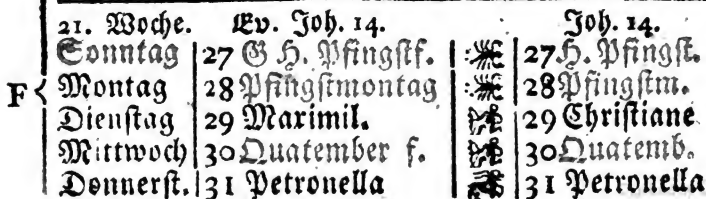 21. Woche. Ev. Joh. 14. Joh. 14.
Sonntag 27 G H. Pfingstf. 27 H. Pfingst.
F Montag 28 Pfingstmontag 28 Pfingstm.
Dienstag 29 Maximil. 29 Christiane
Mittwoch 30 Quatember f. 30 Quatemb.
Donnerst. 31 Petronella 31 Petronella